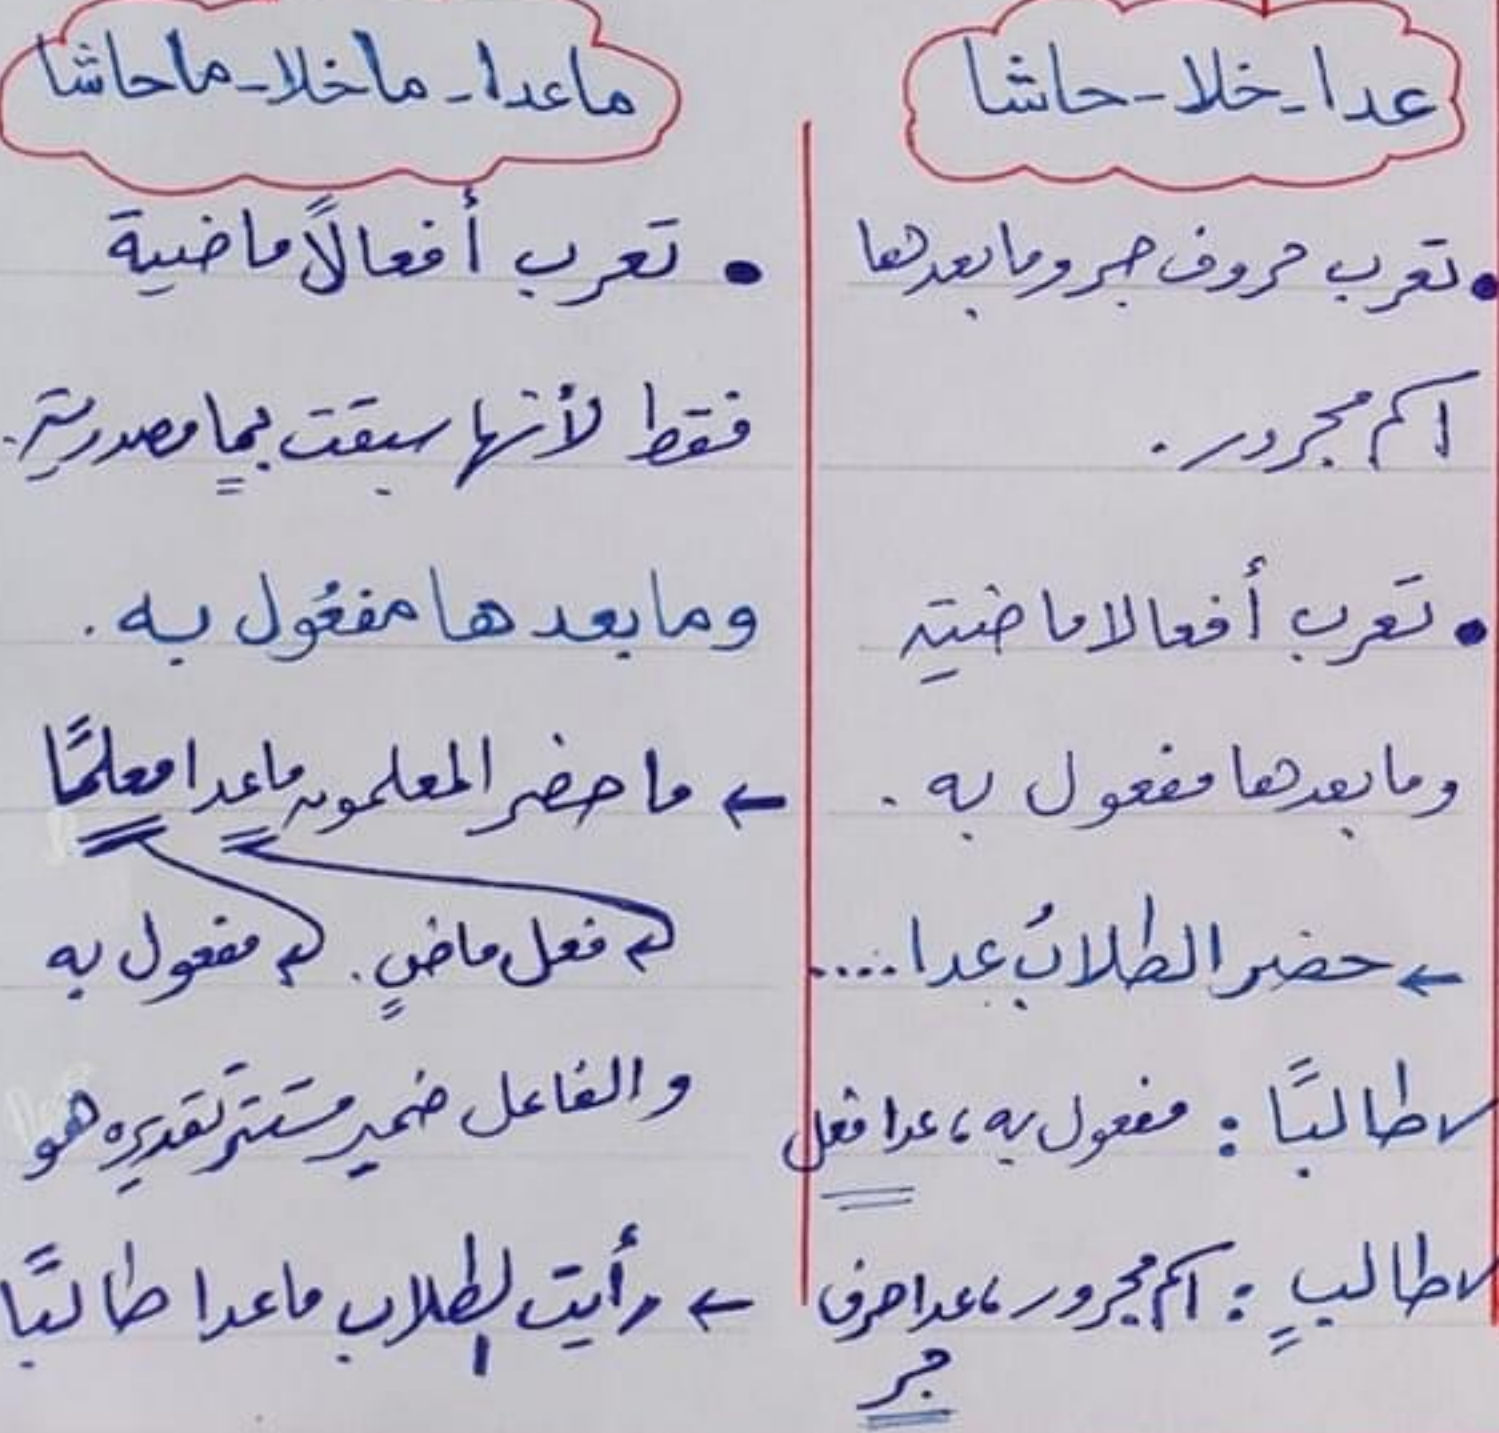 عدا - خلا - حاشا
• تعرب حروف جر وما بعدها
اسم مجرور .
• تعرب أفعالا ماضية
وما بعدها مفعول به .
← حضر الطلابُ عدا ....
طالبًا : مفعول به، عدا فعل
طالبٍ : اسم مجرور، عدا حرف
جر
ماعدا - ماخلا - ماحاشا
• تعرب أفعالاً ماضية
فقط لأنها سبقت بما مصدرية.
وما بعدها مفعُول به .
← ما حضر المعلمون ماعدا معلمًا
فعل ماضٍ . مفعول به
والفاعل ضمير مستتر تقديره هو
← رأيت الطلاب ماعدا طالبًا